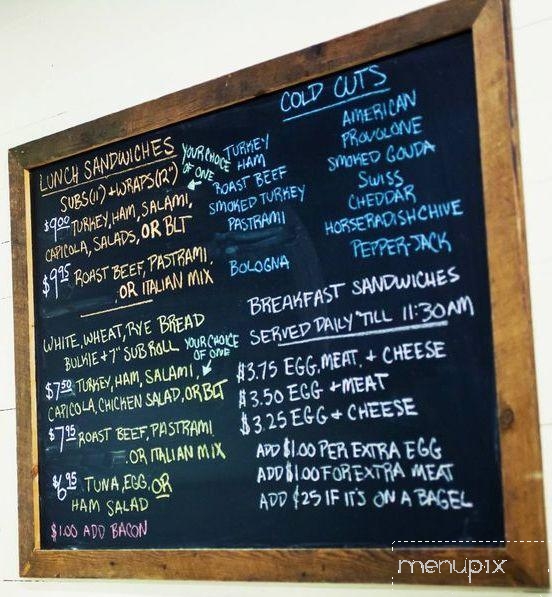 LUNCH SANDWICHES
SUBS (11") + WRAPS (12")
YOUR CHOICE
OF ONE
$9.00 TURKEY, HAM, SALAMI,
CAPICOLA, SALADS, OR BLT
$9.95 ROAST BEEF, PASTRAMI,
OR ITALIAN MIX
WHITE, WHEAT, RYE BREAD
BULKIE + 7" SUB ROLL
YOUR CHOICE
OF ONE
$7.50 TURKEY, HAM, SALAMI,
CAPICOLA, CHICKEN SALAD, OR BLT
$7.95 ROAST BEEF, PASTRAMI
OR ITALIAN MIX
$6.95 TUNA, EGG, OR
HAM SALAD
$1.00 ADD BACON
COLD CUTS
TURKEY
HAM
ROAST BEEF
SMOKED TURKEY
PASTRAMI
BOLOGNA
AMERICAN
PROVOLONE
SMOKED GOUDA
SWISS
CHEDDAR
HORSERADISH CHIVE
PEPPER-JACK
BREAKFAST SANDWICHES
SERVED DAILY 'TILL 11:30AM
$3.75 EGG, MEAT, + CHEESE
$3.50 EGG + MEAT
$3.25 EGG + CHEESE
ADD $1.00 PER EXTRA EGG
ADD $1.00 FOR EXTRA MEAT
ADD $.25 IF IT'S ON A BAGEL
menupix